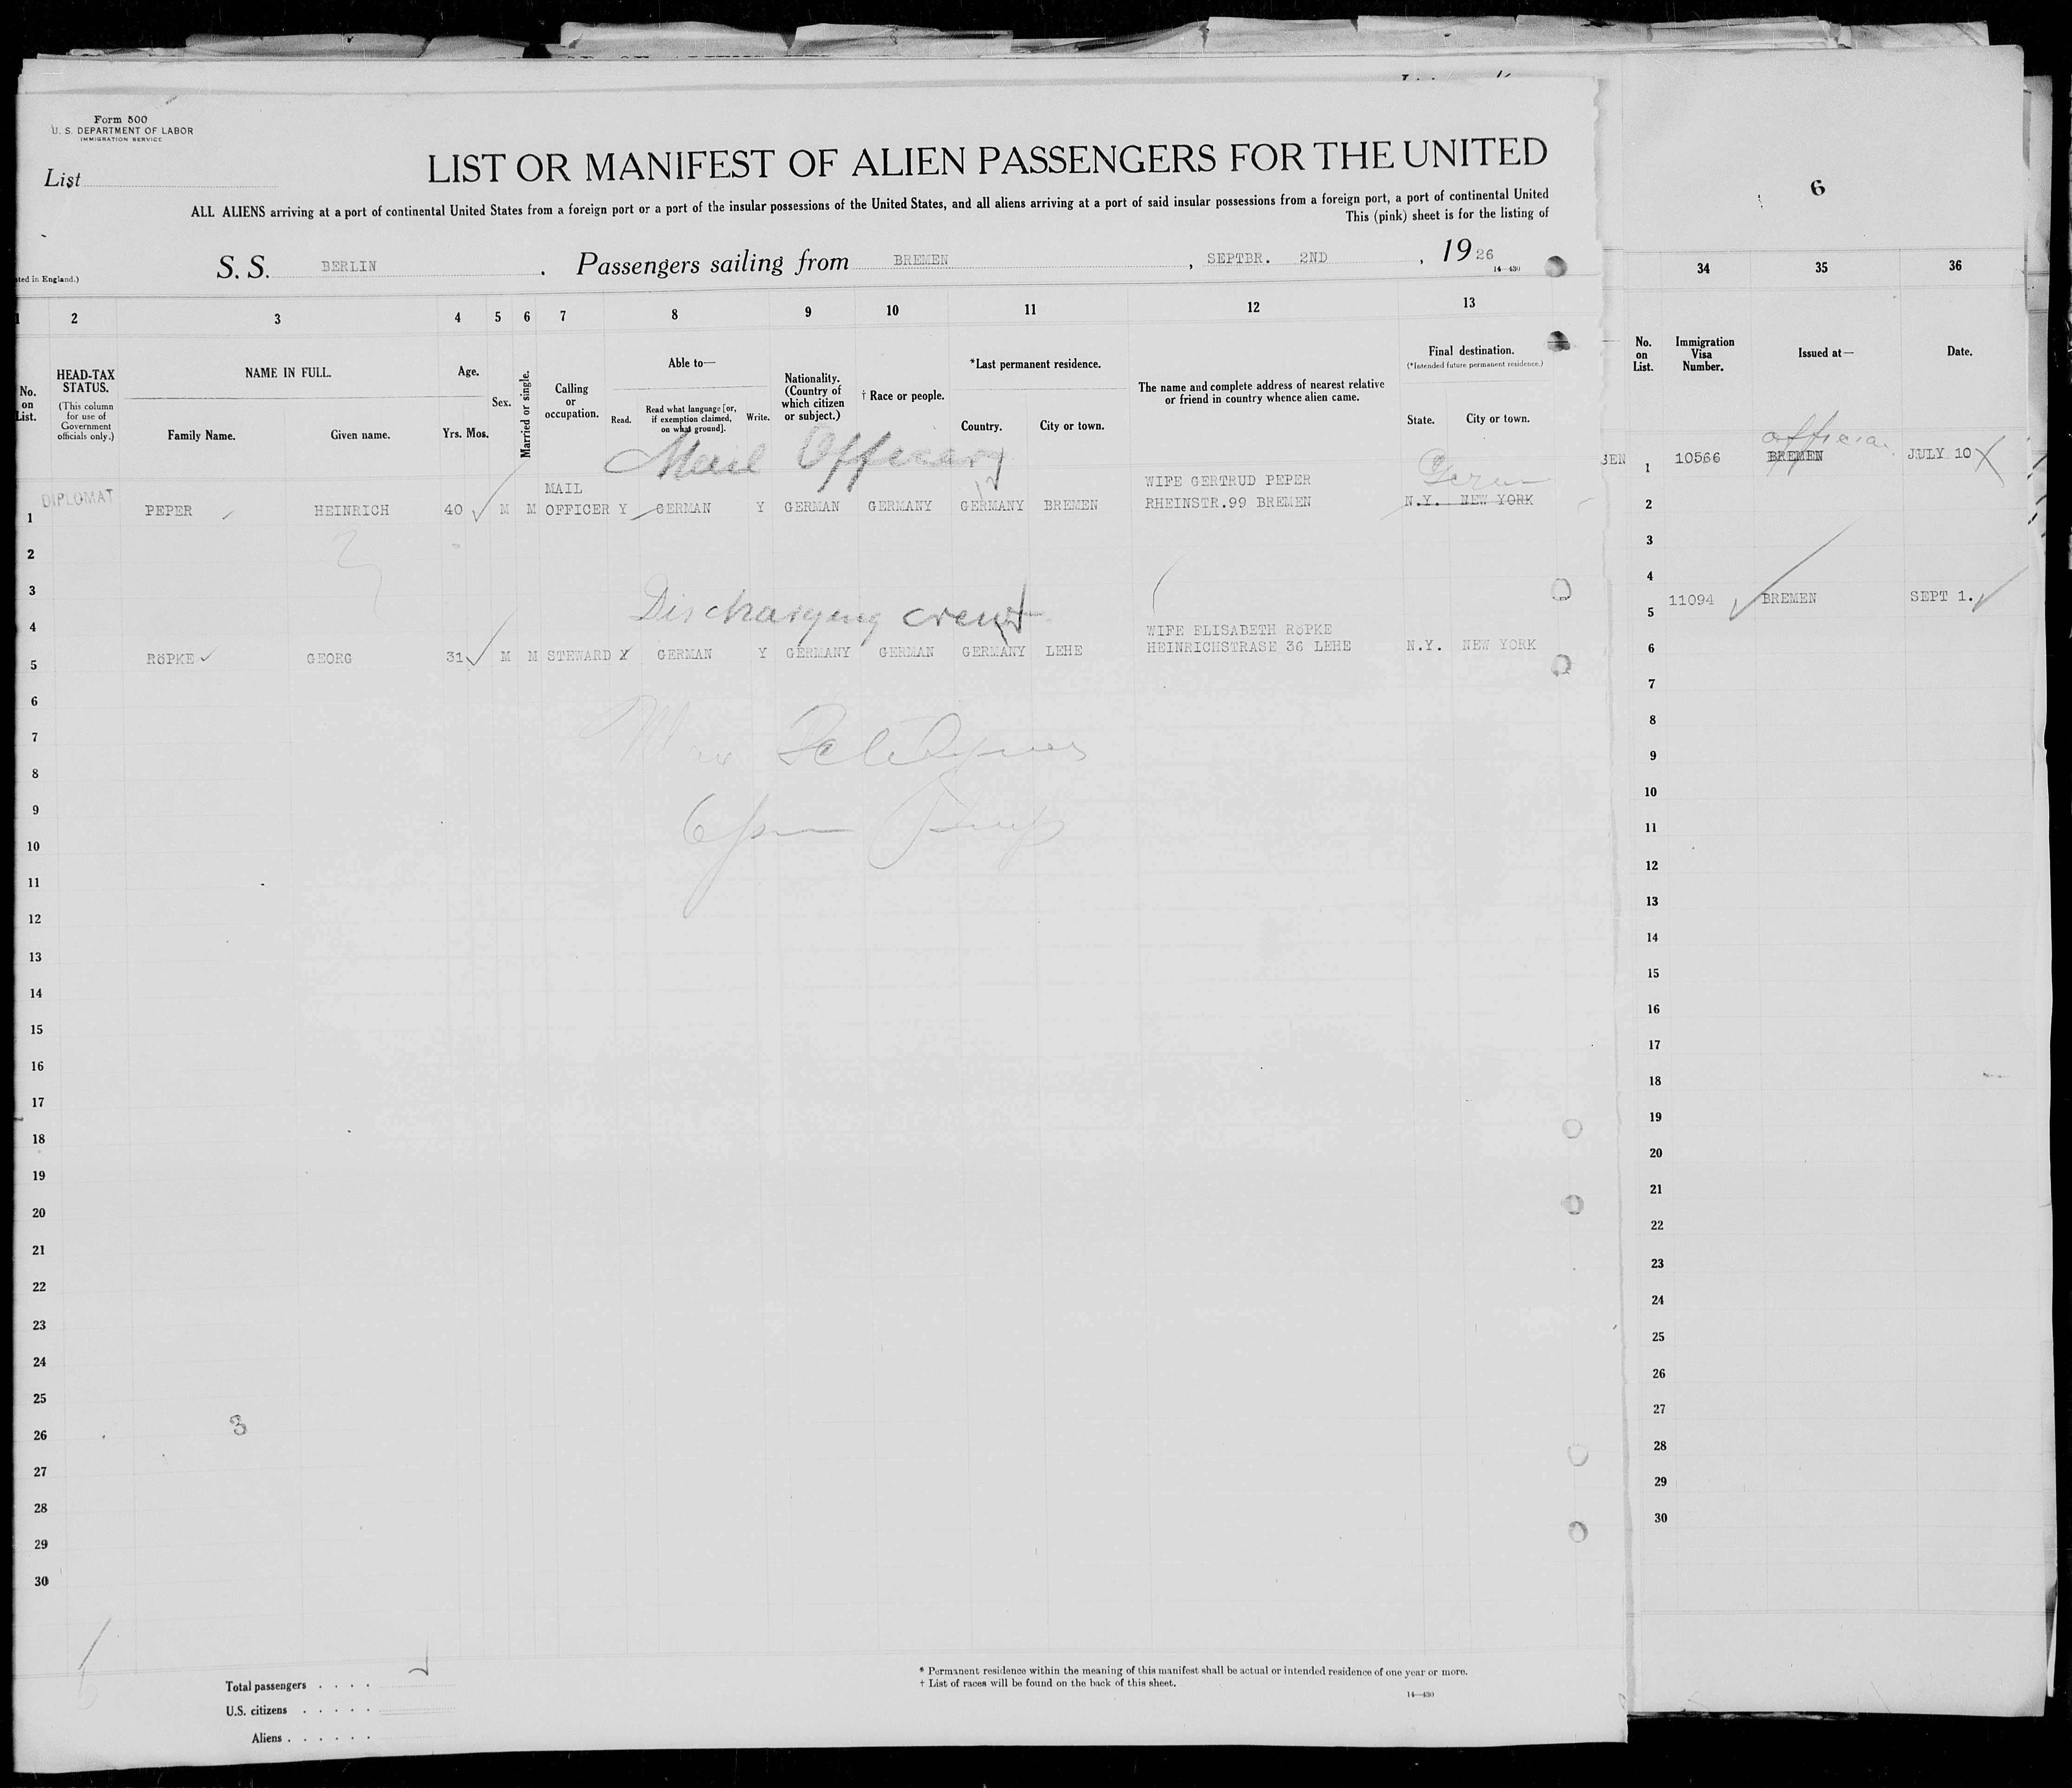 Form 500
U. S. DEPARTMENT OF LABOR
IMMIGRATION SERVICE
List
LIST OR MANIFEST OF ALIEN PASSENGERS FOR THE UNITED
ALL ALIENS arriving at a port of continental United States from a foreign port or a port of the insular possessions of the United States, and all aliens arriving at a port of said insular possessions from a foreign port, a port of continental United
This (pink) sheet is for the listing of
6
S. S. BERLIN . Passengers sailing from BREMEN , SEPTBR. 2ND , 1926
ted in England.)
14—430
1 2 3 4 5 6 7 8 9 10 11 12 13
34 35 36
No. on List.
HEAD-TAX STATUS.
(This column for use of Government officials only.)
NAME IN FULL.
Family Name. Given name.
Age.
Yrs. Mos.
Sex.
Married or single.
Calling or occupation.
Able to—
Read. Read what language [or, if exemption claimed, on what ground]. Write.
Nationality. (Country of which citizen or subject.)
† Race or people.
*Last permanent residence.
Country. City or town.
The name and complete address of nearest relative or friend in country whence alien came.
Final destination.
(*Intended future permanent residence.)
State. City or town.
No. on List.
Immigration Visa Number.
Issued at—
Date.
Mail Officer
DIPLOMAT
1 PEPER HEINRICH 40 M M MAIL OFFICER Y GERMAN Y GERMAN GERMANY GERMANY BREMEN WIFE GERTRUD PEPER RHEINSTR.99 BREMEN N.Y. NEW YORK
SEN 1 10566 BREMEN JULY 10
2
3
4
Discharging crew
5 RÖPKE GEORG 31 M M STEWARD Y GERMAN Y GERMANY GERMAN GERMANY LEHE WIFE ELISABETH RÖPKE HEINRICHSTRASE 36 LEHE N.Y. NEW YORK
2
3
4
5 11094 BREMEN SEPT 1.
6
7
8
9
10
11
12
13
14
15
16
17
18
19
20
21
22
23
24
25
26
27
28
29
30
3
6
7
8
9
10
11
12
13
14
15
16
17
18
19
20
21
22
23
24
25
26
27
28
29
30
Total passengers . . . .
U.S. citizens . . . . .
Aliens . . . . . .
* Permanent residence within the meaning of this manifest shall be actual or intended residence of one year or more.
† List of races will be found on the back of this sheet.
14—430